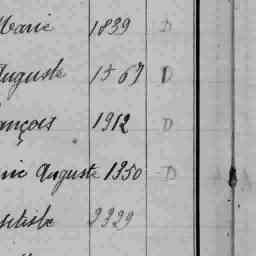 Marie 1839 D
Auguste 1567 D
ançois 1912 D
rie Auguste 1350 D
ptiste 2329